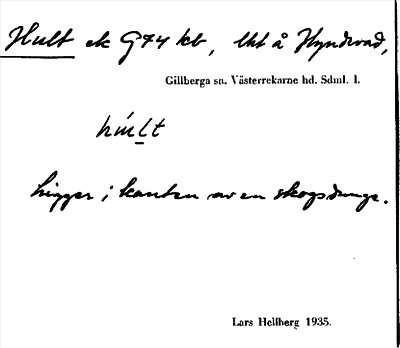 Hult ek G74 kb, lht å Hyndevad,
Gillberga sn. Västerrekarne hd. Sdml. l.
hu̍l̲t
ligger i kanten av en skogsdunge.
Lars Hellberg 1935.